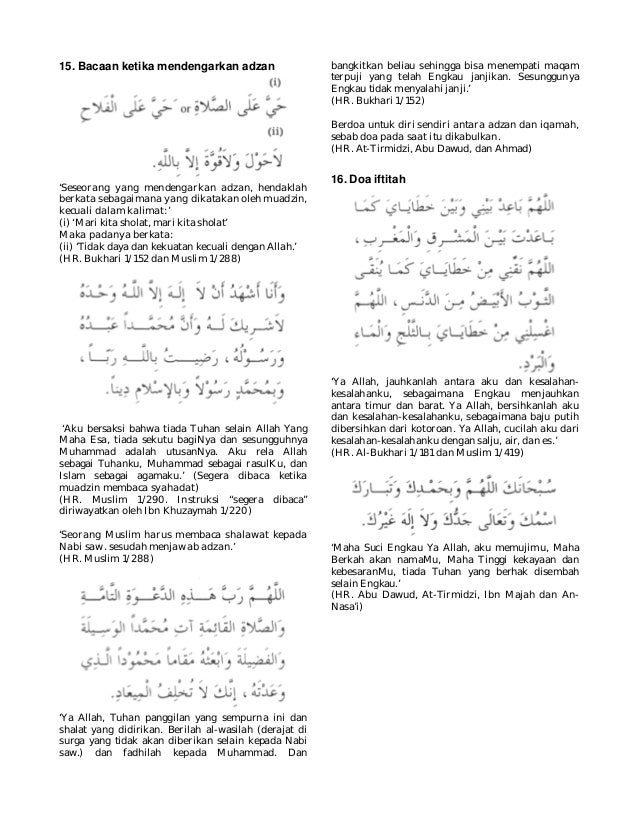 15. Bacaan ketika mendengarkan adzan
(i)
حَيَّ عَلَى الصَّلاَةِ or حَيَّ عَلَى الْفَلاَحِ
(ii)
لاَحَوْلَ وَلاَقُوَّةَ إِلاَّ بِاللَّهِ.
‘Seseorang yang mendengarkan adzan, hendaklah
berkata sebagaimana yang dikatakan oleh muadzin,
kecuali dalam kalimat:’
(i) ‘Mari kita sholat, mari kita sholat’
Maka padanya berkata:
(ii) ‘Tidak daya dan kekuatan kecuali dengan Allah.’
(HR. Bukhari 1/152 dan Muslim 1/288)
وَأَنَا أَشْهَدُ أَنْ لاَ إِلَهَ إِلاَّ اللَّهُ وَحْدَهُ
لاَشَرِيكَ لَهُ وَأَنَّ مُحَمَّداً عَبْدُهُ
وَرَسُوْلُهُ، رَضِيتُ بِاللَّهِ رَبّاً،
وَبِمُحَمَّدٍ رَسُوْلاً وَبِالإِسْلاَمِ دِيناً.
‘Aku bersaksi bahwa tiada Tuhan selain Allah Yang
Maha Esa, tiada sekutu bagiNya dan sesungguhnya
Muhammad adalah utusanNya. Aku rela Allah
sebagai Tuhanku, Muhammad sebagai rasulKu, dan
Islam sebagai agamaku.’ (Segera dibaca ketika
muadzin membaca syahadat)
(HR. Muslim 1/290. Instruksi “segera dibaca”
diriwayatkan oleh Ibn Khuzaymah 1/220)
‘Seorang Muslim harus membaca shalawat kepada
Nabi saw. sesudah menjawab adzan.’
(HR. Muslim 1/288)
اللَّهُمَّ رَبَّ هَذِهِ الدَّعْوَةِ التَّامَّةِ
وَالصَّلاَةِ القَائِمَةِ آتِ مُحَمَّداً الوَسِيلَةَ
وَالفَضِيلَةَ وَابْعَثْهُ مَقَاماً مَحْمُوْداً الَّذِي
وَعَدْتَهُ، إِنَّكَ لاَ تُخْلِفُ الْمِيعَادِ.
‘Ya Allah, Tuhan panggilan yang sempurna ini dan
shalat yang didirikan. Berilah al-wasilah (derajat di
surga yang tidak akan diberikan selain kepada Nabi
saw.) dan fadhilah kepada Muhammad. Dan
bangkitkan beliau sehingga bisa menempati maqam
terpuji yang telah Engkau janjikan. Sesunggunya
Engkau tidak menyalahi janji.’
(HR. Bukhari 1/152)
Berdoa untuk diri sendiri antara adzan dan iqamah,
sebab doa pada saat itu dikabulkan.
(HR. At-Tirmidzi, Abu Dawud, dan Ahmad)
16. Doa iftitah
اللَّهُمَّ بَاعِدْ بَيْنِي وَبَيْنَ خَطَايَايَ كَمَا
بَاعَدْتَ بَيْنَ الْمَشْرِقِ وَالْمَغْرِبِ،
اللَّهُمَّ نَقِّنِي مِنْ خَطَايَايَ كَمَا يُنَقَّى
الثَّوْبُ الأَبْيَضُ مِنَ الدَّنَسِ، اللَّهُمَّ
اغْسِلْنِي مِنْ خَطَايَايَ بِالثَّلْجِ وَالْمَاءِ
وَالْبَرَدِ.
‘Ya Allah, jauhkanlah antara aku dan kesalahan-
kesalahanku, sebagaimana Engkau menjauhkan
antara timur dan barat. Ya Allah, bersihkanlah aku
dan kesalahan-kesalahanku, sebagaimana baju putih
dibersihkan dari kotoroan. Ya Allah, cucilah aku dari
kesalahan-kesalahanku dengan salju, air, dan es.’
(HR. Al-Bukhari 1/181 dan Muslim 1/419)
سُبْحَانَكَ اللَّهُمَّ وَبِحَمْدِكَ وَتَبَارَكَ
اسْمُكَ وَتَعَالَى جَدُّكَ وَلاَ إِلَهَ غَيْرُكَ.
‘Maha Suci Engkau Ya Allah, aku memujimu, Maha
Berkah akan namaMu, Maha Tinggi kekayaan dan
kebesaranMu, tiada Tuhan yang berhak disembah
selain Engkau.’
(HR. Abu Dawud, At-Tirmidzi, Ibn Majah dan An-
Nasa’i)